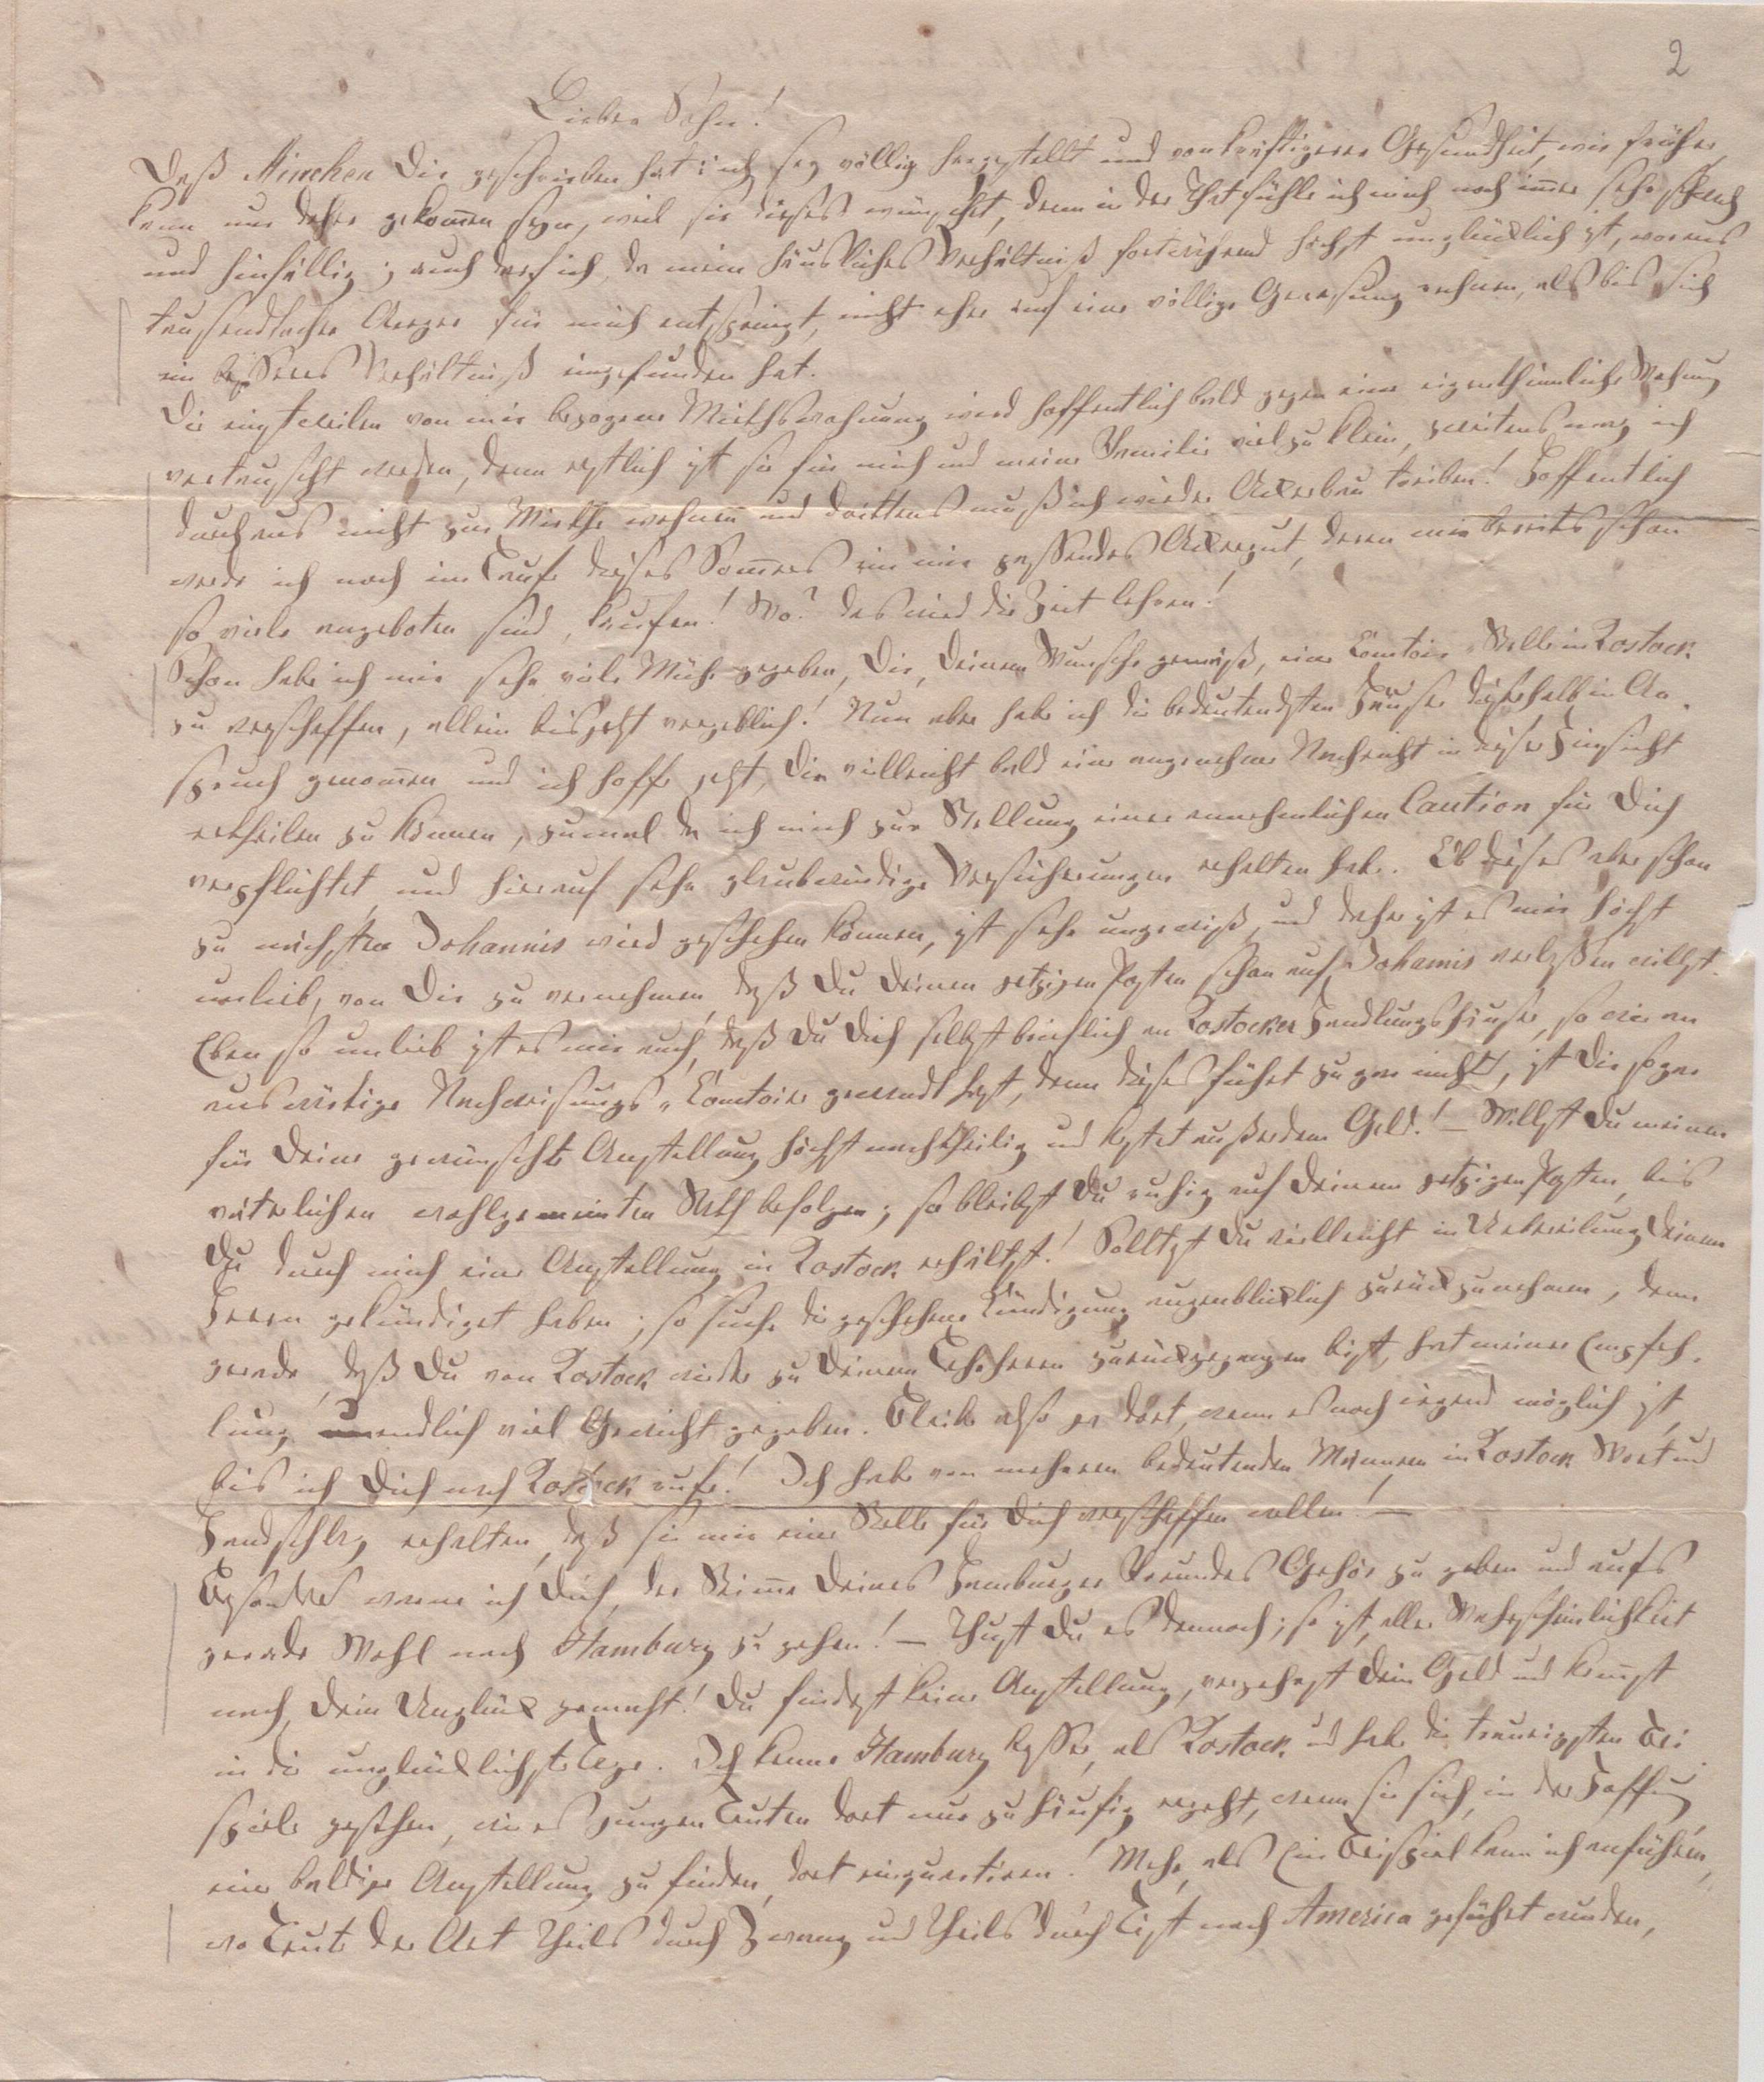 2
Lieber Sohn!
Daß Minchen Dir geschrieben hat: ich sey völlig hergestellt und von kräftigerer Gesundheit, wie früher,
kann nur daher gekom̄en seyn, weil sie dieses wünschet, denn in der That fühle ich mich noch im̄er sehr schwach
und hinfällig; auch darf ich, da mein häusliches Verhältniß fortwährend höchst unglücklich ist, woraus
tausendfacher Aerger für mich entspringt, nicht eher auf eine völlige Genesung rechnen, als bis sich
ein besseres Verhältniß eingefunden hat.
Die einstweilen von mir bezogene Miethswohnung wird hoffentlich bald gegen eine eigenthümliche Wohnung
vertauscht werden, denn erstlich ist sie für mich und meine Familie viel zu klein, zweitens mag ich
durchaus nicht zur Miethe wohnen und drittens muß ich wieder Ackerbau treiben! Hoffentlich
werde ich noch im Laufe dieses Som̄ers ein mir passendes Ackergut, deren mir bereits schon
so viele angeboten sind, kaufen! Wo? das wird die Zeit lehren!
Schon habe ich mir sehr viele Mühe gegeben, Dir, Deinem Wunsche gemäß, eine Comtoir-Stelle in Rostock
zu verschaffen, allein bis jetzt vergeblich! Nun aber habe ich die bedeutendsten Häuser dieserhalb in An-
spruch genom̄en und ich hoffe jetzt, Dir vielleicht bald eine angenehme Nachricht in dieser Hinsicht
ertheilen zu können, zumal da ich mich zur Stellung einer annehmlichen Caution für Dich
verpflichtet und hierauf sehr glaubwürdige Versicherungen erhalten habe. Ob dieses aber schon
zu nächsten Johannis wird geschehen können, ist sehr ungewiß und daher ist es mir höchst
unlieb, von Dir zu vernehmen, daß Du Deinen jetzigen Posten schon auf Johannis verlassen willst.
Eben so unlieb ist es mir auch, daß Du Dich selbst brieflich an Rostocker Handlungshäuser, so wie an
auswärtige Nachweisungs-Comtoire gewandt hast, denn dieses führt zu gar nichts, ist Dir sogar
für Deine gewünschte Anstellung höchst nachtheilig und kostet außerdem Geld! – Willst Du meinen
väterlichen wohlgemeinten Rath befolgen; so bleibst Du ruhig auf Deinem jetzigen Posten, bis
Du durch mich eine Anstellung in Rostock erhältst! Solltest Du vielleicht in Uebereilung Deinem
Herrn gekündiget haben; so suche die geschehene Kündigung augenblicklich zurückzunehmen, denn
gerade, daß Du von Rostock wieder zu Deinem Lehrherrn zurückgegangen bist, hat meiner Empfeh-
lung unendlich viel Gewicht gegeben. Bleibe also ja dort, wenn es noch irgend möglich ist,
bis ich Dich nach Rostock rufe! Ich habe von mehreren bedeutenden Männern in Rostock Wort und
Handschlag erhalten, daß sie mir eine Stelle für Dich verschaffen wollen! –
Besonders warne ich Dich, der Stim̄e Deines Hamburger Freundes Gehör zu geben und aufs
gerade Wohl nach Hamburg zu gehen! – Thust Du es dennoch; so ist, aller Wahrscheinlichkeit
nach, Dein Unglück gemacht! Du findest keine Anstellung, verzehrst Dein Geld und kom̄st
in die unglücklichste Lage. Ich kenne Hamburg besser, als Rostock und habe die traurigsten Bei-
spiele gesehen, wie es jungen Leuten dort nur zu häufig ergeht, wenn sie sich, in der Hoffnung
eine baldige Anstellung zu finden, dort einquartiren! Mehr, als Ein Beispiel kann ich anführen,
wo Leute der Art theils durch Zwang und theils durch List nach America geführt wurden,